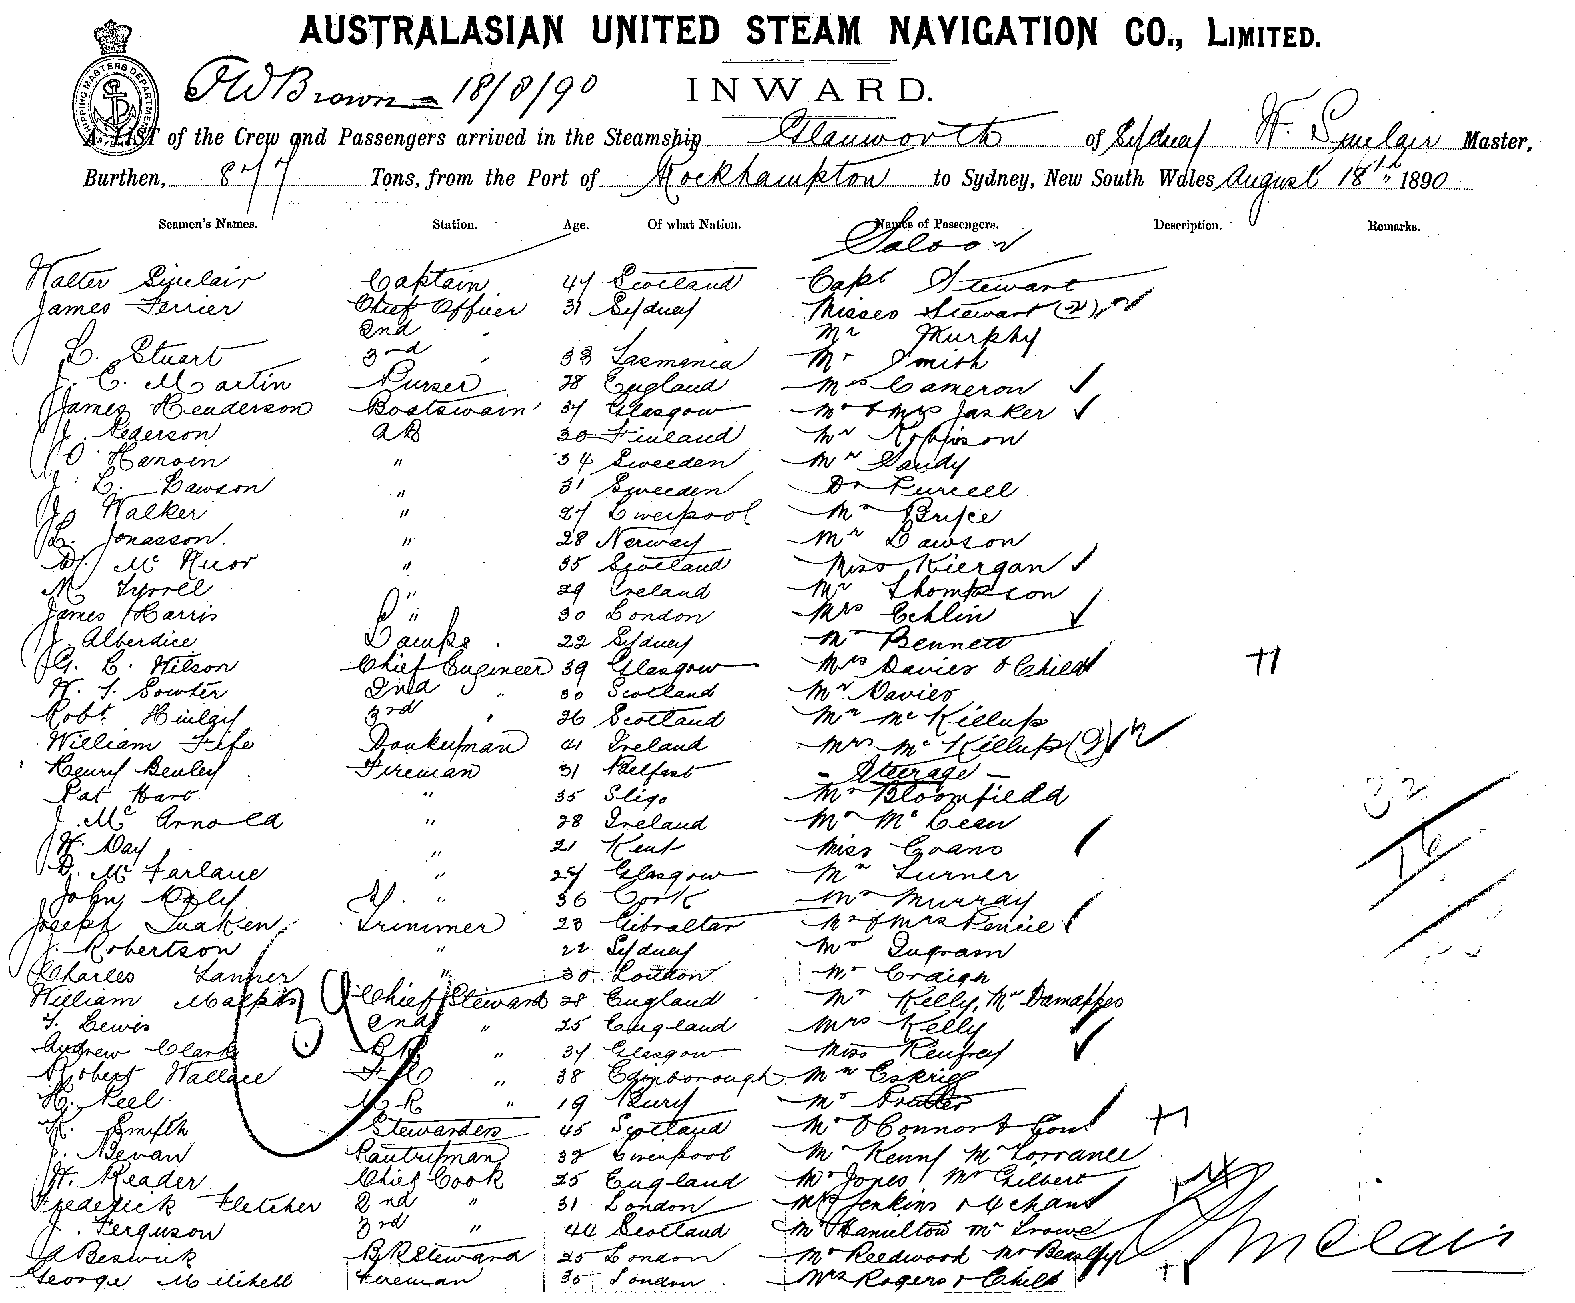 AUSTRALASIAN UNITED STEAM NAVIGATION CO., LIMITED.
FW Brown 18/8/90 INWARD.
A LIST of the Crew and Passengers arrived in the Steamship Glanworth of Sydney W. Sinclair Master,
Burthen, 877 Tons, from the Port of Rockhampton to Sydney, New South Wales August 18th 1890
Seamen's Names. Station. Age. Of what Nation. Names of Passengers. Description. Remarks.
Saloon
Walter Sinclair Captain 47 Scotland Capt Stewart
James Ferrier Chief Officer 31 Sydney Misses Stewart (2)
2nd " Mr Murphy
L. Stuart 3rd " 33 Tasmania Mr Smith
J. C. Martin Purser 28 England Mrs Cameron
James Henderson Boatswain 37 Glasgow Mr & Mrs Jasker
J. Pederson AB 30 Finland Mr Robinson
O Hansin " 34 Sweeden Mr Dandy
J. L. Lawson " 31 Sweeden Dr Purcell
J. Walker " 27 Liverpool Mr Bryce
L. Jonasson. " 28 Norway Mr Lawson
" 35 Scotland Miss Kiergan
M. Tyrrell " 29 Ireland Mr Thompson
James Harris " 30 London Mrs Echlin
J. Alberdice Lamps 22 Sydney Mr Bennett
G. C. Wilson Chief Engineer 39 Glasgow Mrs Davies & Child
W. T. Sowter 2nd " 30 Scotland Mr Davies
Robt. 3rd " 26 Scotland Mr McKillup
William Fife Donkeyman 41 Ireland Mrs McKillup (2)
Henry Fireman 31 Belfast Steerage
Pat " 35 Sligo Mr Bloomfield
J. McArnold " 28 Ireland Mr McLean 32
W. Day " 21 Kent Miss Evans 16
D. McFarlane " 27 Glasgow Mr Turner
John " 36 Cork Mr Murray
Joseph Trimmer 23 Gibraltar Mr & Mrs
J. Robertson " 22 Sydney Mr Ingram
Charles Tanner " 30 London Mr Craigh
William Chief Steward 28 England Mr Kelly, Mr
T. Lewis 2nd " 25 England Mrs Kelly
Andrew Clark " 37 Glasgow Miss Renfrey
Robert Wallace " 38 Edinborough Mr Eskrigg
H. Peel " 19 Bury Mr
K. Smith Stewardess 45 Scotland Mr O'Connor & Son
J. Bevan Pantryman 32 Liverpool Mr Kenny Mr Torrance
W. Reader Chief Cook 25 England Mr Jones Mr Gilbert
Frederick Fletcher 2nd " 31 London Mrs Jenkins
J. Ferguson 3rd " 44 Scotland Mr Hamilton Mr Trowe
A Beswick BR Steward 25 London Mr Reedwood
George Mitchell Fireman 35 London Mrs Rogers & Child
W Sinclair